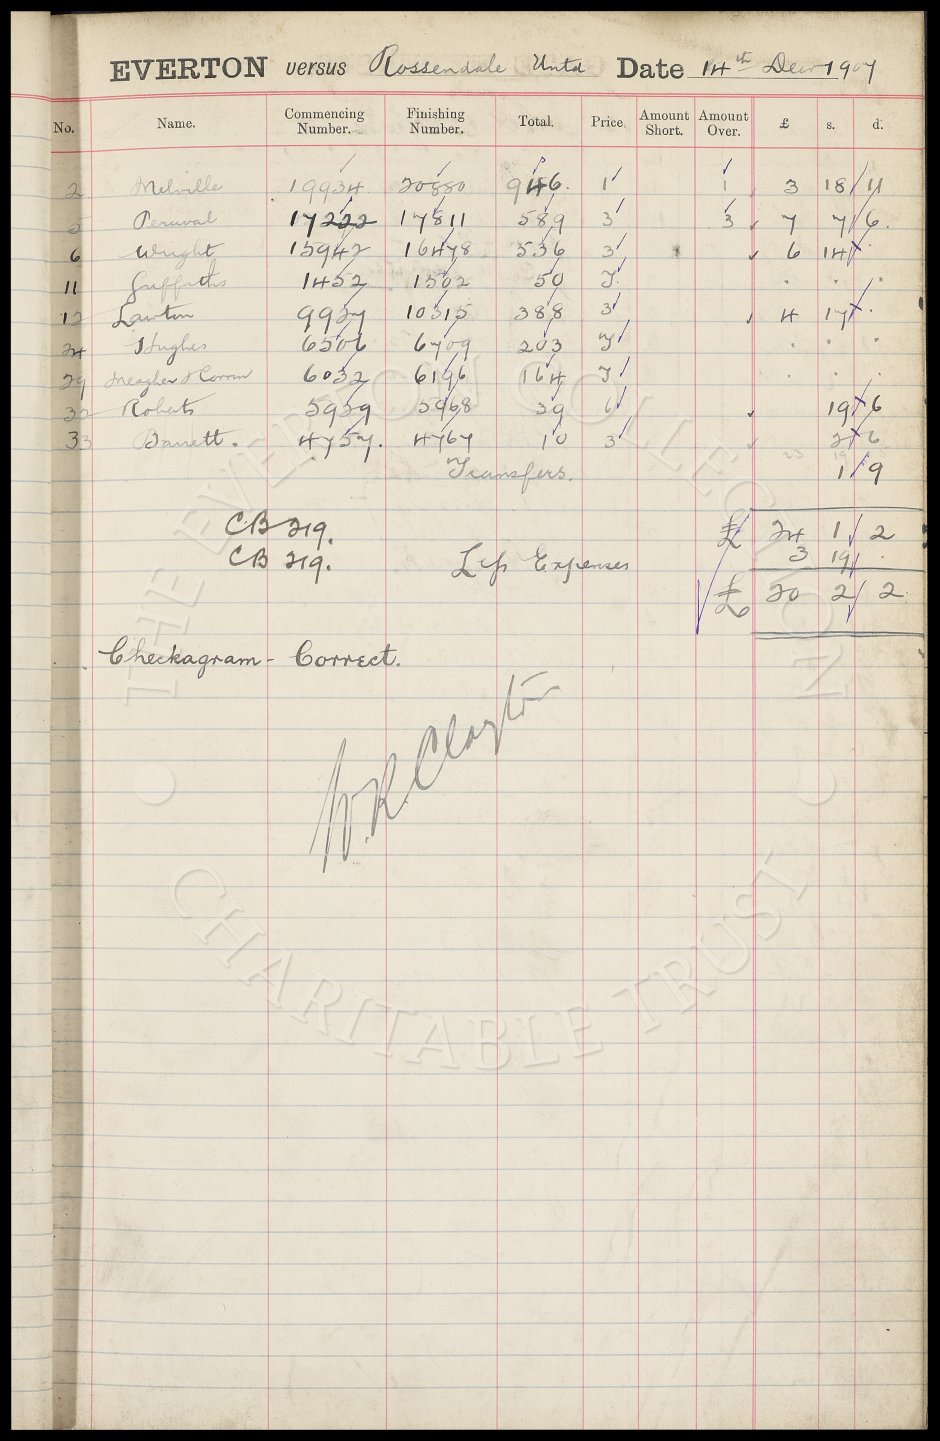 EVERTON versus Rossendale Untd Date 14th Decr 1907
No. Name. Commencing Number. Finishing Number. Total. Price. Amount Short. Amount Over. £ s. d.
2 Melville 19934 20880 946 1 1 3 18 11
5 Percival 17222 17811 589 3 3 7 7 6
6 Wright 15942 16478 536 3 6 14 .
11 Griffiths 1452 1502 50 T . . .
12 Lawton 9927 10315 388 3 4 17 .
24 Hughes 6506 6709 203 T . . .
29 Meagher & Corrin 6032 6196 164 T . . .
32 Roberts 5929 5968 39 6 19 6
33 Barrett. 4757. 4767 10 3 2 6
23 19 5
Transfers. 1 9
CB 219. £ 24 1 2
CB 219. Less Expenses 3 19 .
£ 20 2 2
Checkagram - Correct.
W.R. Clayton
THE EVERTON COLLECTION
CHARITABLE TRUST